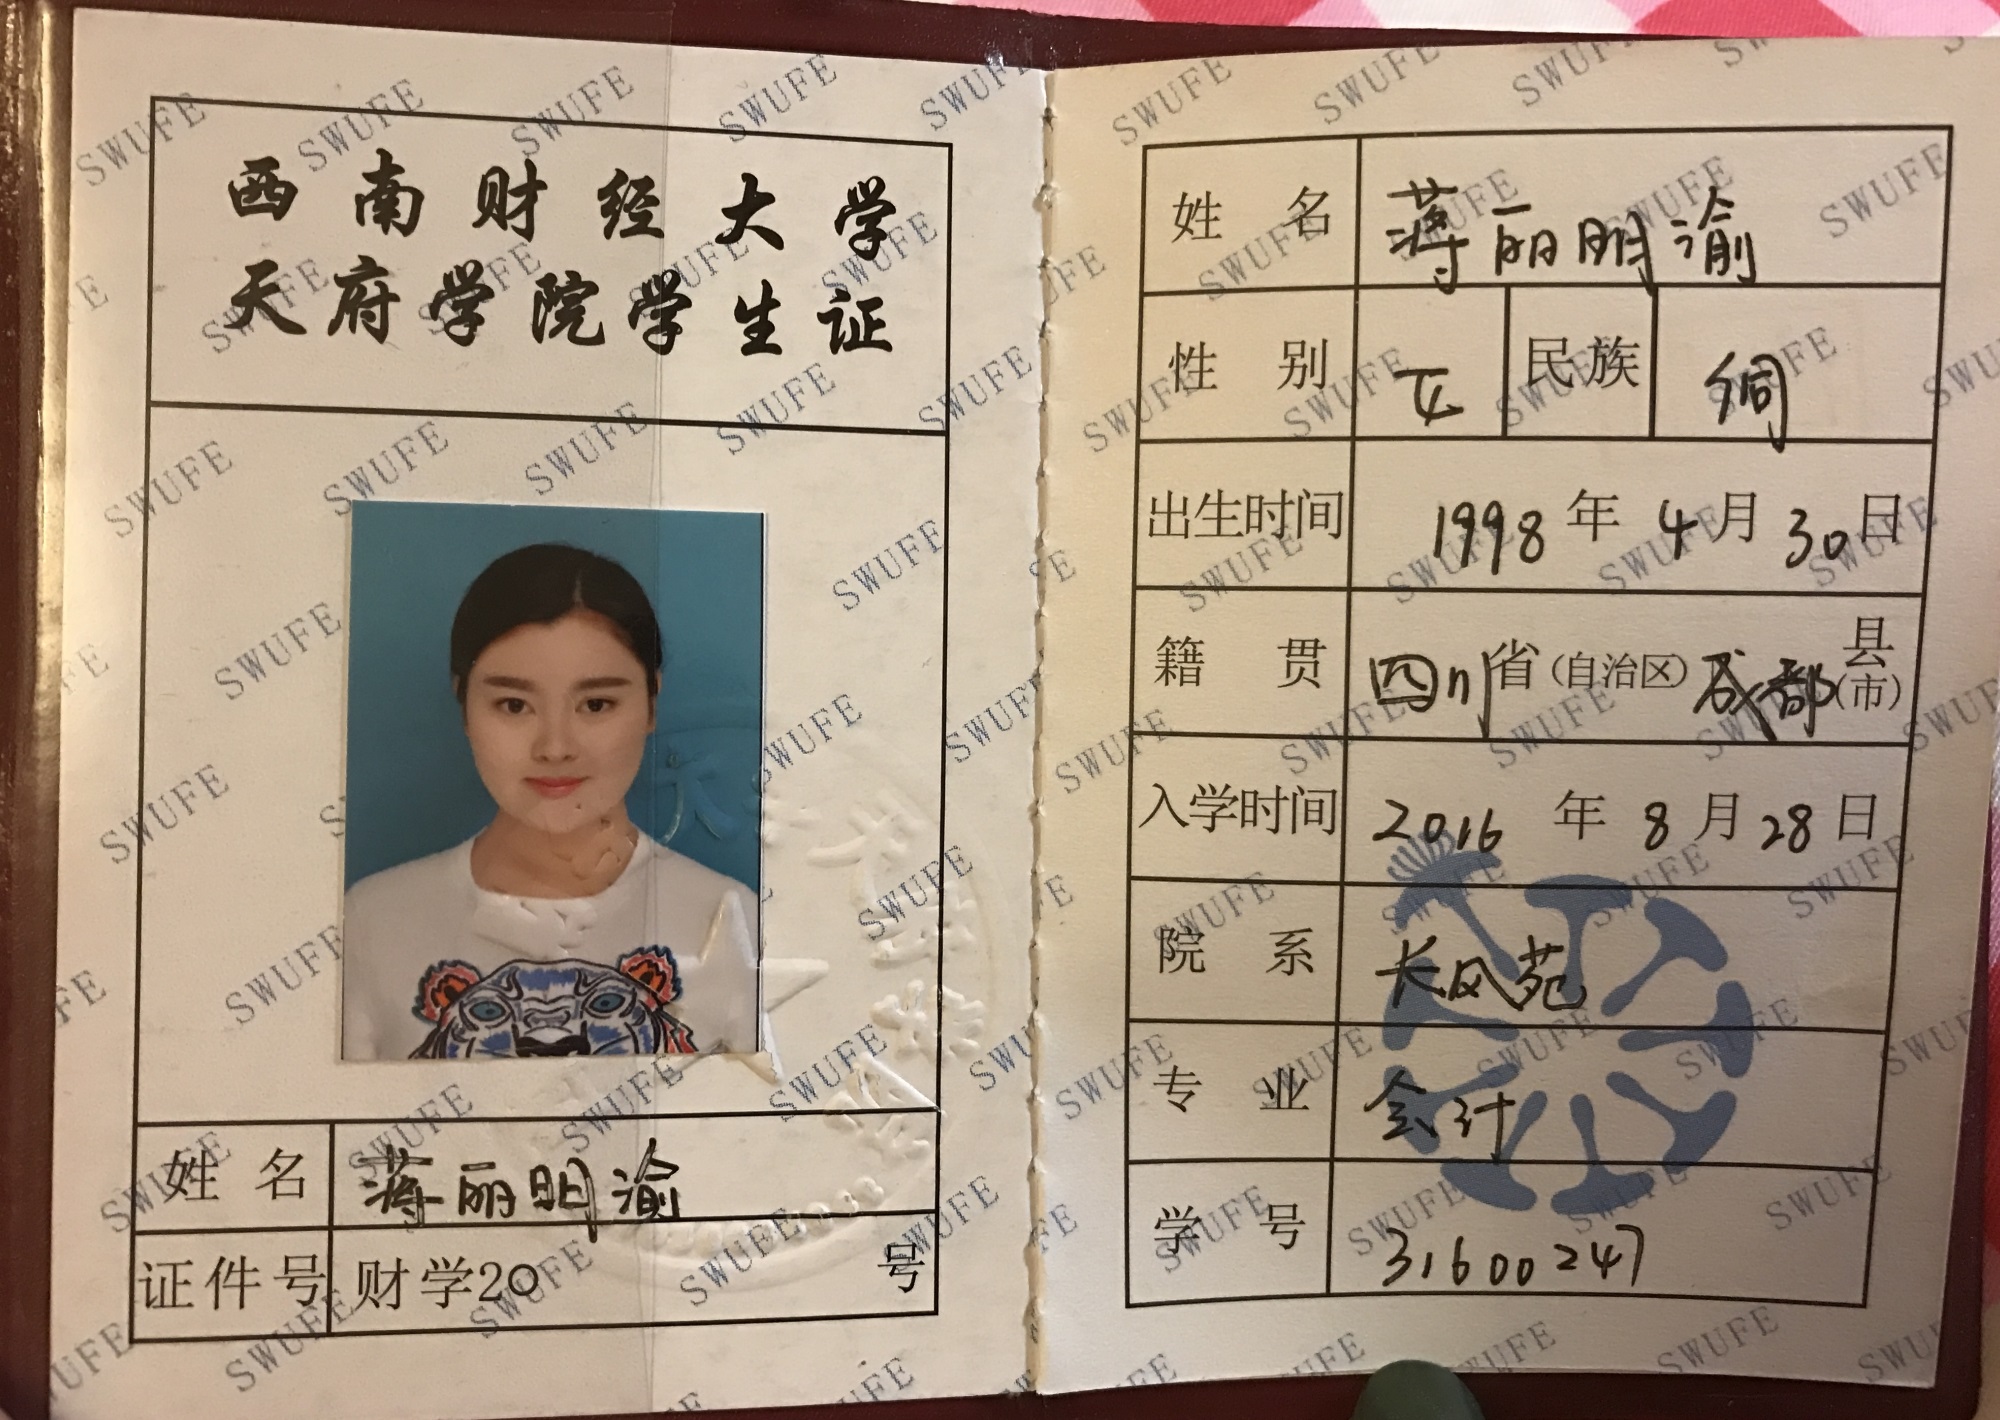 西南财经大学
天府学院学生证
姓名 蒋丽明渝
证件号 财学20 号
姓名 蒋丽明渝
性别 女 民族 侗
出生时间 1998年4月30日
籍贯 四川省(自治区)成都县(市)
入学时间 2016年8月28日
院系 长风苑
专业 会计
学号 31600247
SWUFE